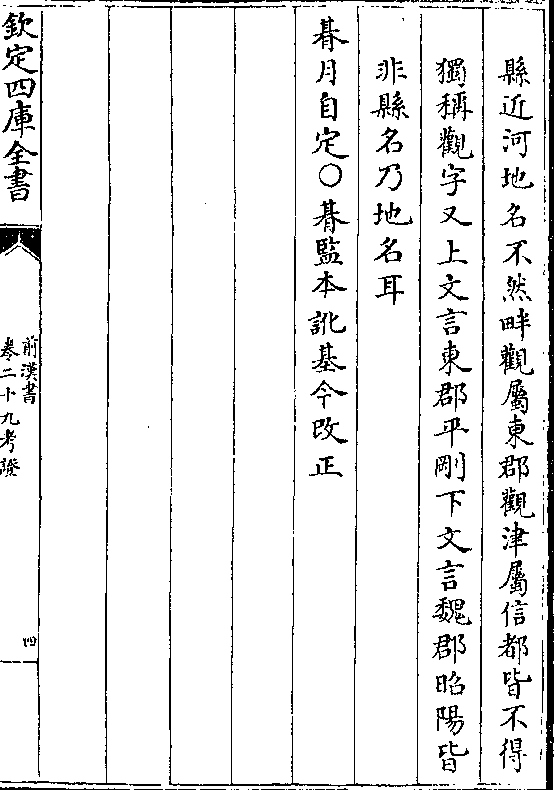 縣近河地名不然畔觀屬東郡觀津屬信都皆不得
獨稱觀字又上文言東郡平剛下文言魏郡昭陽皆
非縣名乃地名耳
朞月自定○朞監本訛基今改正
欽定四庫全書
前漢書
卷二十九考證
四